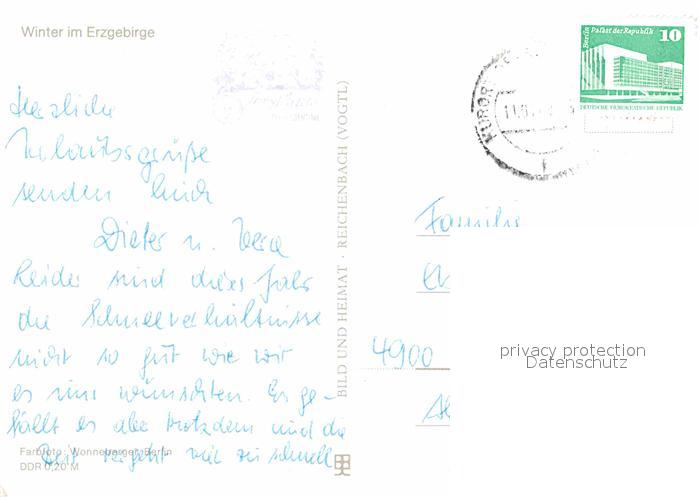 Winter im Erzgebirge
Herzliche
Urlaubsgrüße
senden Euch
Dieter u. Vera
Leider sind dieses Jahr
die Schneeverhältnisse
nicht so gut wie wir
es uns wünschten. Es ge-
fällt es aber trotzdem und die
Zeit vergeht viel zu schnell
Farbfoto: Wonneberger, Berlin
DDR 0,20 M
BILD UND HEIMAT · REICHENBACH (VOGTL)
Berlin Palast der Republik 10
DEUTSCHE DEMOKRATISCHE REPUBLIK
KURORT
Familie
4900
privacy protection
Datenschutz